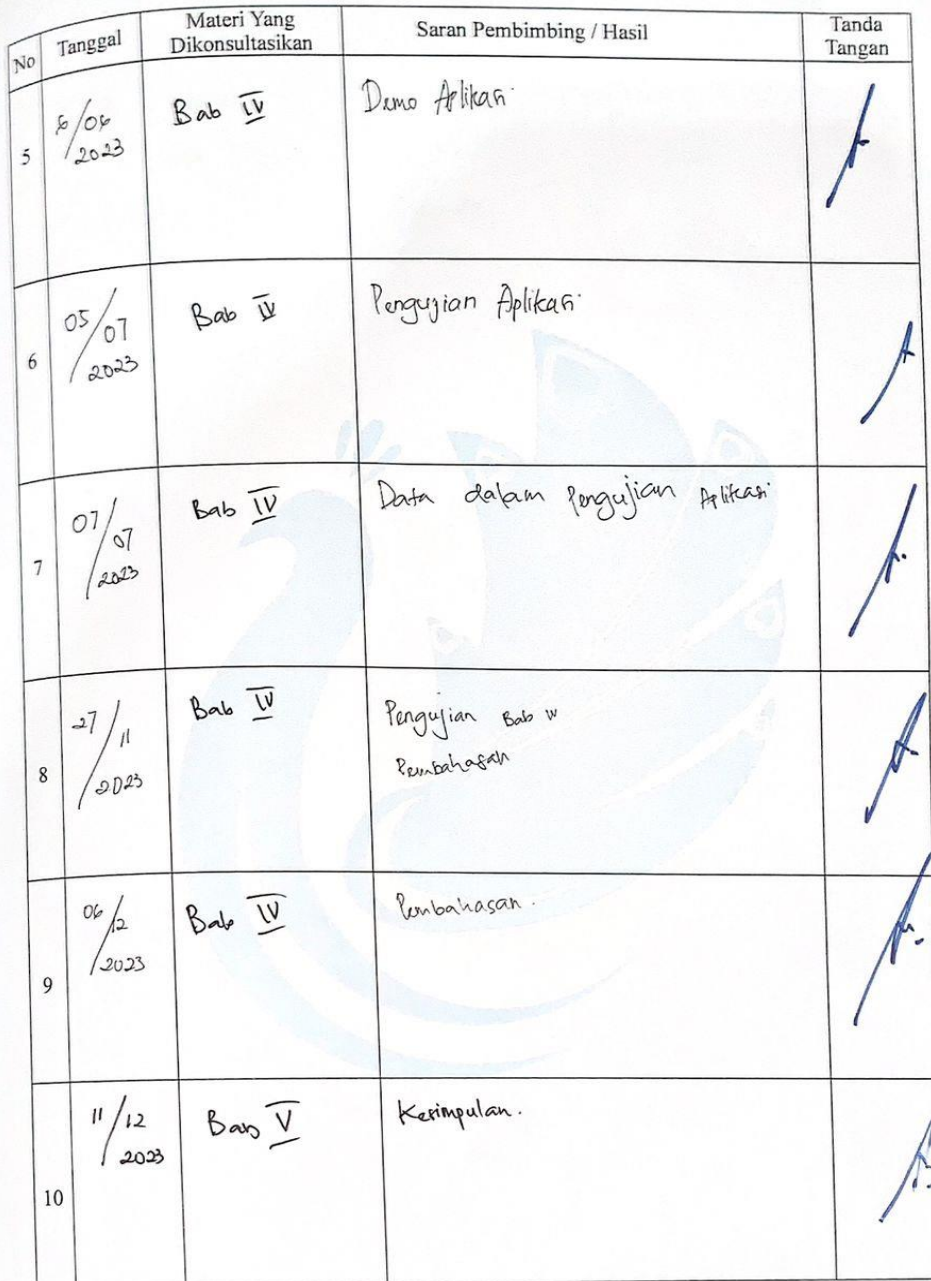 No Tanggal Materi Yang Dikonsultasikan Saran Pembimbing / Hasil Tanda Tangan
5 6/06 2023 Bab IV Demo Aplikasi
6 05/07 2023 Bab IV Pengujian Aplikasi
7 07/07 2023 Bab IV Data dalam pengujian Aplikasi
8 27/11 2023 Bab IV Pengujian Bab IV
Pembahasan
9 06/12 2023 Bab IV Pembahasan.
10 11/12 2023 Bab V Kesimpulan.